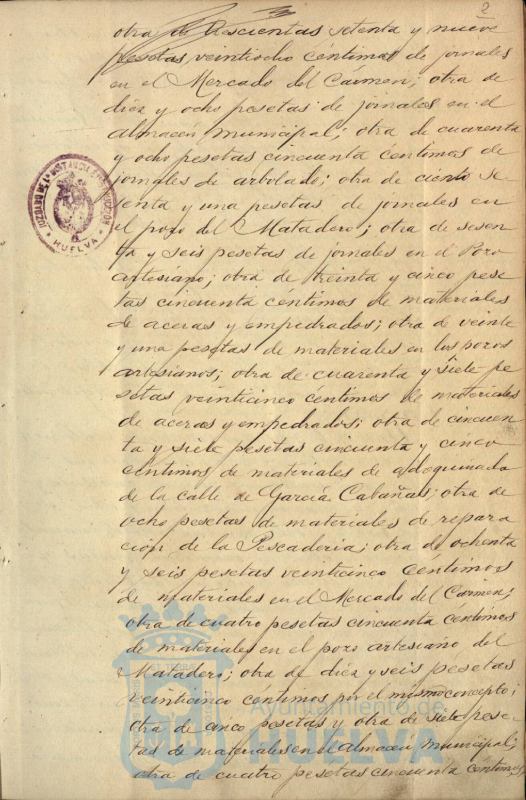 2
otra de doscientas setenta y nueve
pesetas veintiocho céntimos de jornales
en el Mercado del Carmen; otra de
diez y ocho pesetas de jornales en el
almacén municipal; otra de cuarenta
y ocho pesetas cincuenta céntimos de
jornales de arbolado; otra de ciento se
tenta y una pesetas de jornales en
el pozo del Matadero; otra de sesen
ta y seis pesetas de jornales en el Pozo
artesiano; otra de treinta y cinco pese
tas cincuenta céntimos de materiales
de aceras y empedrados; otra de veinte
y una pesetas de materiales en los pozos
artesianos; otra de cuarenta y siete pe
setas veinticinco céntimos de materiales
de aceras y empedrados; otra de cincuen
ta y siete pesetas cincuenta y cinco
céntimos de materiales de adoquinado
de la calle de García Cabañas; otra de
ocho pesetas de materiales de repara
ción de la Pescadería; otra de ochenta
y seis pesetas veinticinco céntimos
de materiales en el Mercado del Carmen;
otra de cuatro pesetas cincuenta céntimos
de materiales en el pozo artesiano del
Matadero; otra de diez y seis pesetas
veinticinco céntimos por el mismo concepto;
otra de cinco pesetas y otra de siete pese
tas de materiales en el almacén municipal;
otra de cuatro pesetas cincuenta céntimos
JUZGADO DE 1ª INSTANCIA
HUELVA
Ayuntamiento de
HUELVA